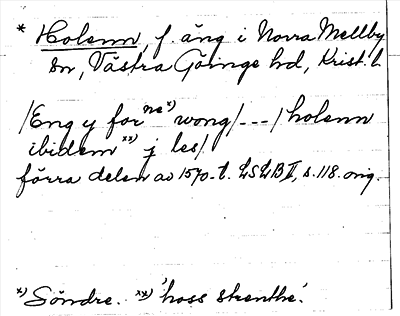 * Holenn, f. äng i Norra Mellby
sn, Västra Göinge hd, Krist. L
/Eng y for ne x) wong/---/holenn
ibidem xx) j les/
förra delen av 1570-t. LSLB II, s. 118. orig.
x) Söndre. xx) 'hoss strenthe'.